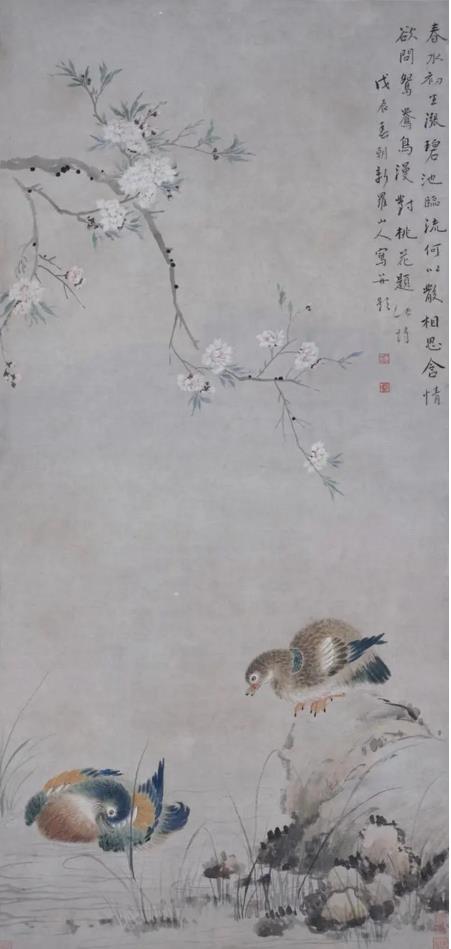 春水初生漲碧池臨流何以散相思含情
欲問鴛鴦鳥漫對桃花題此詩
戊辰春朝新羅山人寫并題